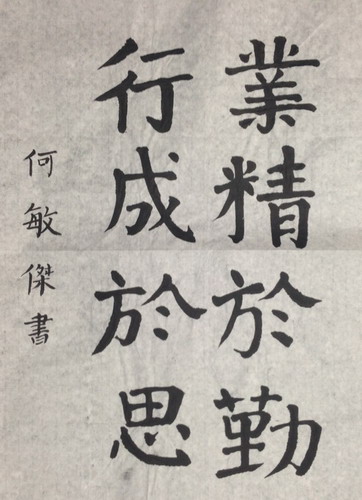 業精於勤
行成於思
何敏傑書